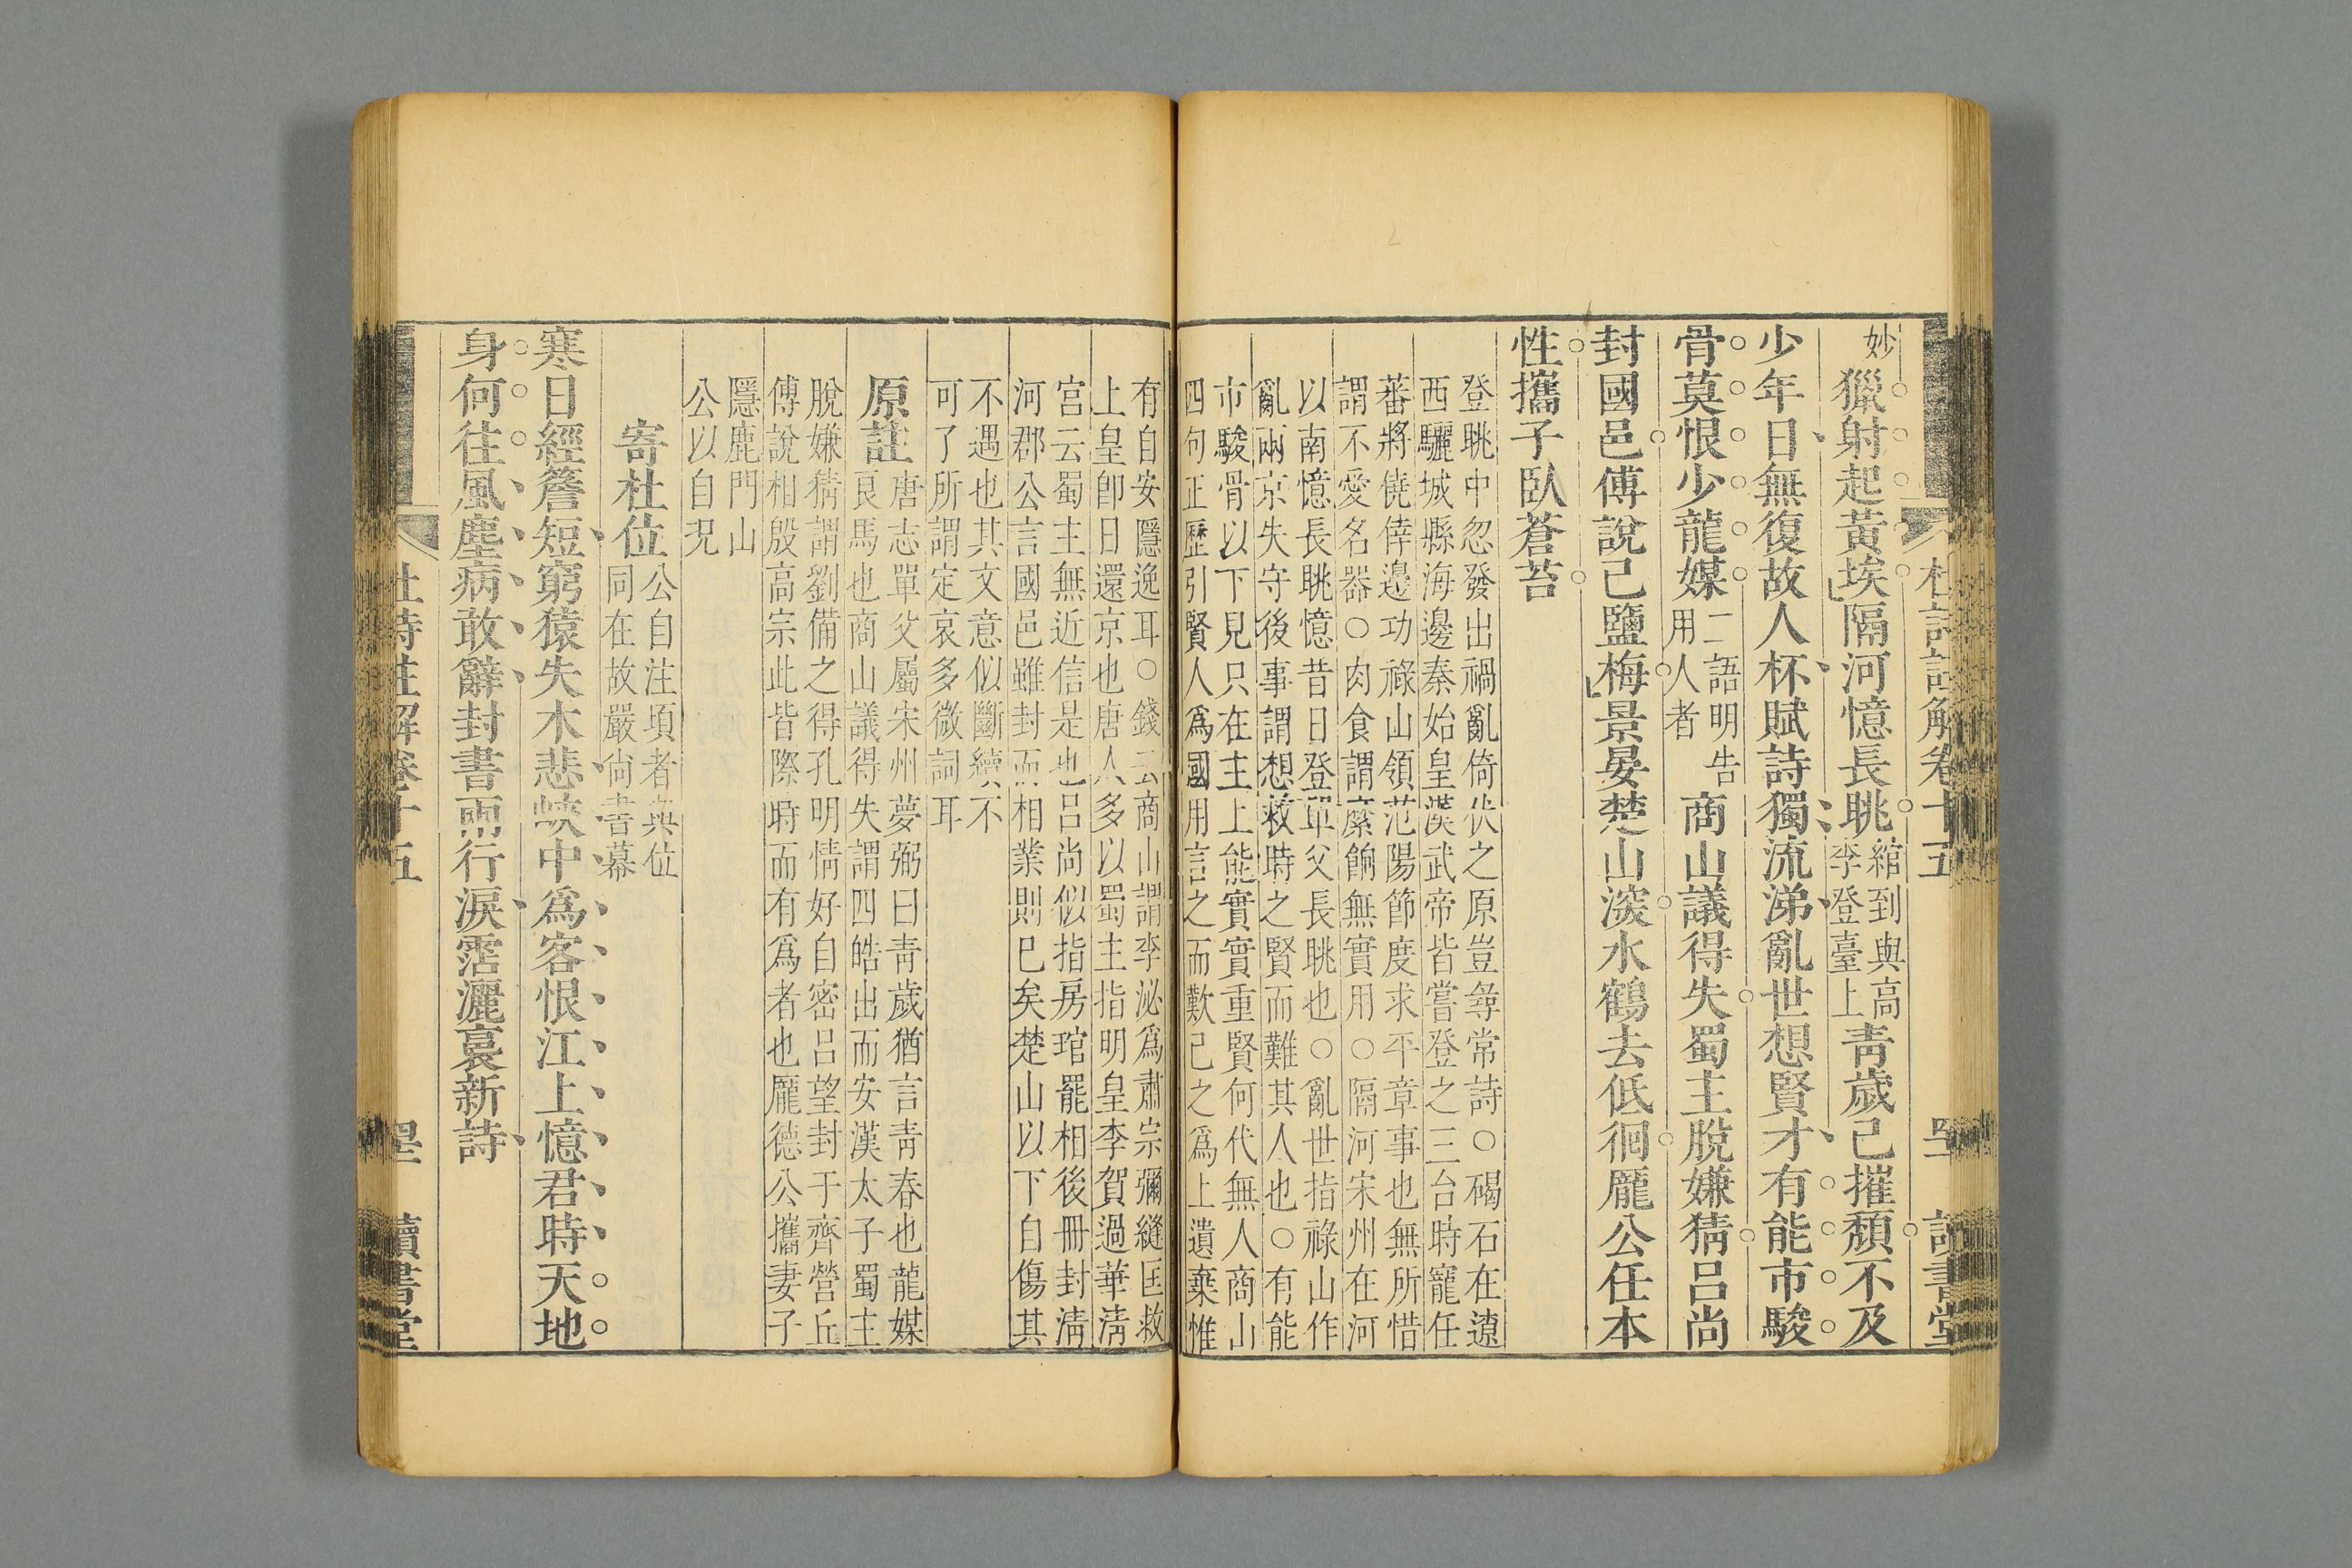 妙
獵射起黃埃隔河憶長眺
綰到與高
李登臺上
青歲已摧頹不及
少年日無復故人杯賦詩獨流涕亂世想賢才有能市駿
骨莫恨少龍媒
二語明告
用人者
商山議得失蜀主脫嫌猜呂尚
封國邑傅說已鹽梅景晏楚山深水鶴去低徊龐公任本
性攜子臥蒼苔
登眺中忽發出禍亂倚伏之原豈尋常詩○碣石在遼
西驪城縣海邊秦始皇漢武帝皆嘗登之三台時寵任
蕃將僥倖邊功祿山領范陽節度求平章事也無所惜
謂不愛名器○肉食謂縻餉無實用○隔河宋州在河
以南憶長眺憶昔日登單父長眺也○亂世指祿山作
亂兩京失守後事謂想救時之賢而難其人也○有能
市駿骨以下見只在主上能實實重賢何代無人商山
四句正歷引賢人爲國用言之而歎己之爲上遺棄惟
有自安隱逸耳○錢云商山謂李泌爲肅宗彌縫匡救
上皇卽日還京也唐人多以蜀主指明皇李賀過華淸
宮云蜀主無近信是也呂尚似指房琯罷相後冊封淸
河郡公言國邑雖封而相業則已矣楚山以下自傷其
不遇也其文意似斷續不
可了所謂定哀多微詞耳
原註
唐志單父屬宋州夢弼曰靑歲猶言靑春也龍媒
良馬也商山議得失謂四皓出而安漢太子蜀主
脫嫌猜謂劉備之得孔明情好自密呂望封于齊營丘
傅說相殷高宗此皆際時而有爲者也龐德公攜妻子
隱鹿門山
公以自況
寄杜位
公自注頃者與位
同在故嚴尙書幕
寒日經簷短窮猿失木悲峽中爲客恨江上憶君時天地
身何往風塵病敢辭封書兩行淚霑灑裛新詩
杜詩註解卷十五
讀書堂